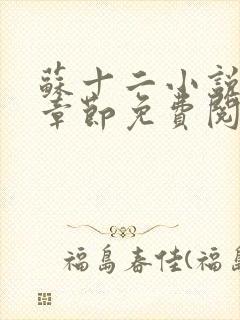 蘇十二小說
章節免費閱
福島春佳(福島